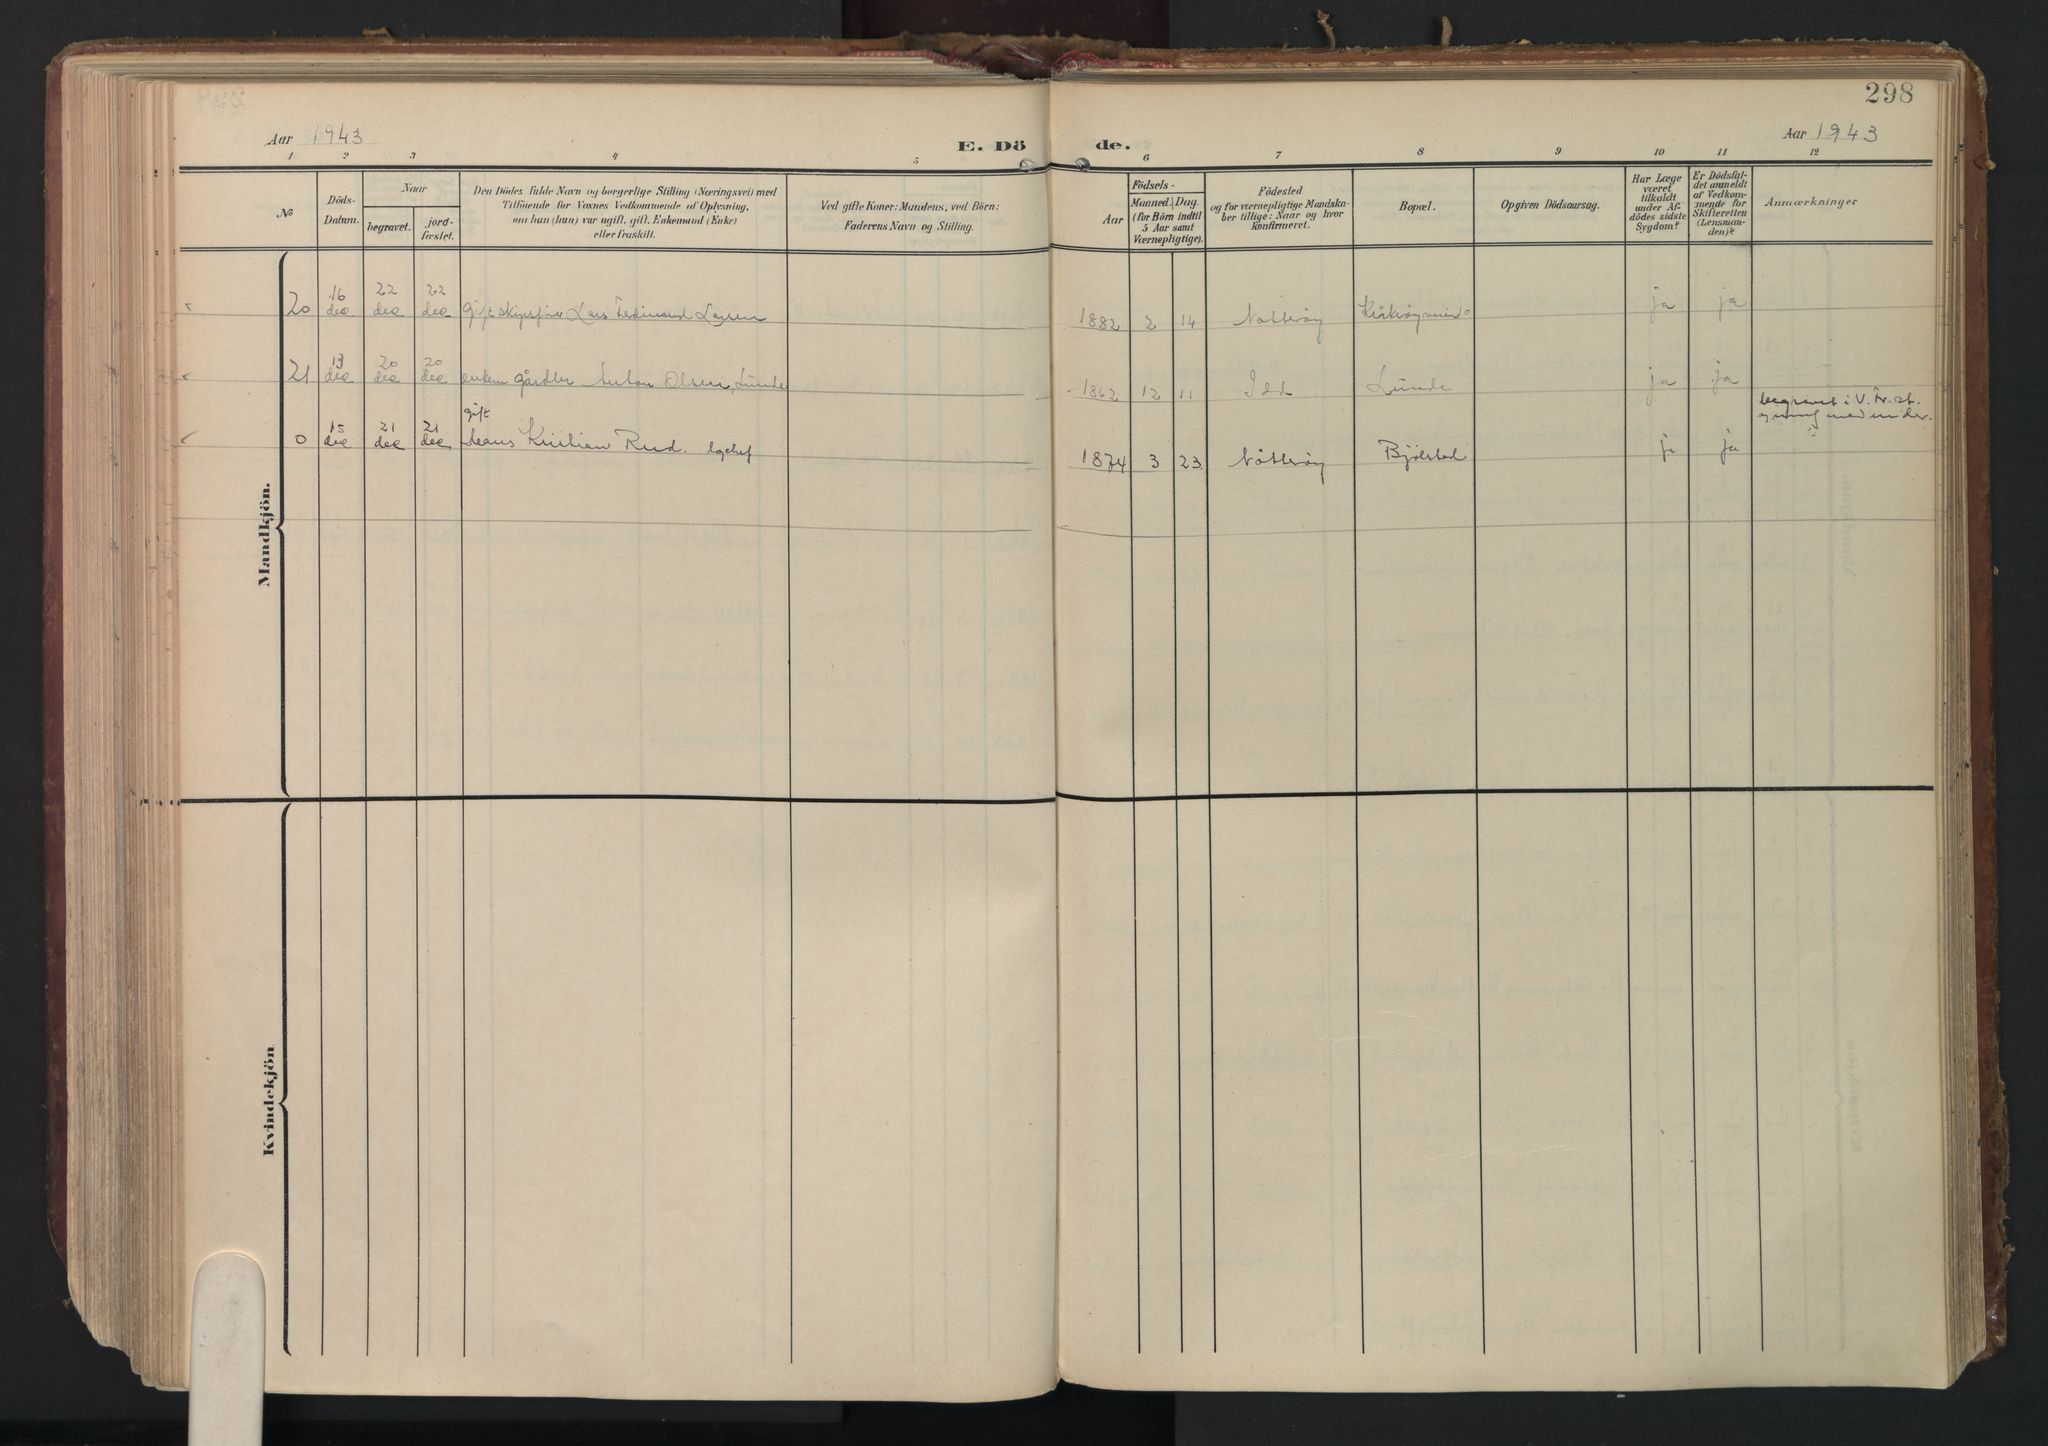 298
Aar 1943
E. Dö de.
Aar 1943
1 2 3 4 5 6 7 8 9 10 11 12
No
Döds-
Datum.
Naar
begravet.
jord-
fæstet.
Den Dödes fulde Navn og borgerlige Stilling (Næringsvei) med
Tilföiende for Voxnes Vedkommende af Oplysning,
om han (hun) var ugift, gift, Enkemand (Enke)
eller fraskilt.
Ved gifte Koner: Mandens, ved Börn:
Faderens Navn og Stilling.
Födsels-
Aar
Maaned. Dag.
(for Börn indtil
5 Aar samt
Værnepligtige).
Födested
og for værnepligtige Mandska-
ber tillige: Naar og hvor
konfirmeret.
Bopæl.
Opgiven Dödsaarsag.
Har Læge
været
tilkaldt
under Af-
dödes sidste
Sygdom?
Er Dödsfal-
det anmeldt
af Vedkom-
mende for
Skifteretten
(Lensman-
den)?
Anmærkninger
Mandkjön.
20 16 dec 22 dec 22 dec gift skipsfører Lars Ferdinand Larsen 1882 2 14 Nøtterøy ja ja
21 13 dec 20 dec 20 dec enkem gårdbr Anton Olsen, Lunde 1862 12 11 Idd Lunde ja ja
0 15 dec 21 dec 21 dec gift Hans Kristian Rud. 1874 3 23 Nøtterøy ja ja
begravet i V. Fr. st.
Kvindekjön